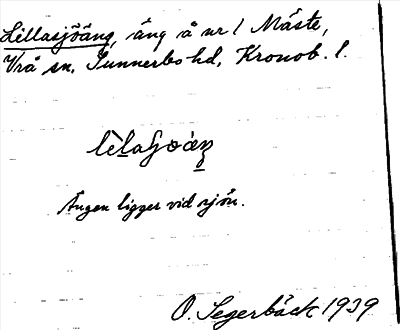 Lillasjöäng, äng å nr 1 Måste,
Vrå sn, Sunnerbo hd, Kronob. l.
Ängen ligger vid sjön.
O. Segerbäck 1939